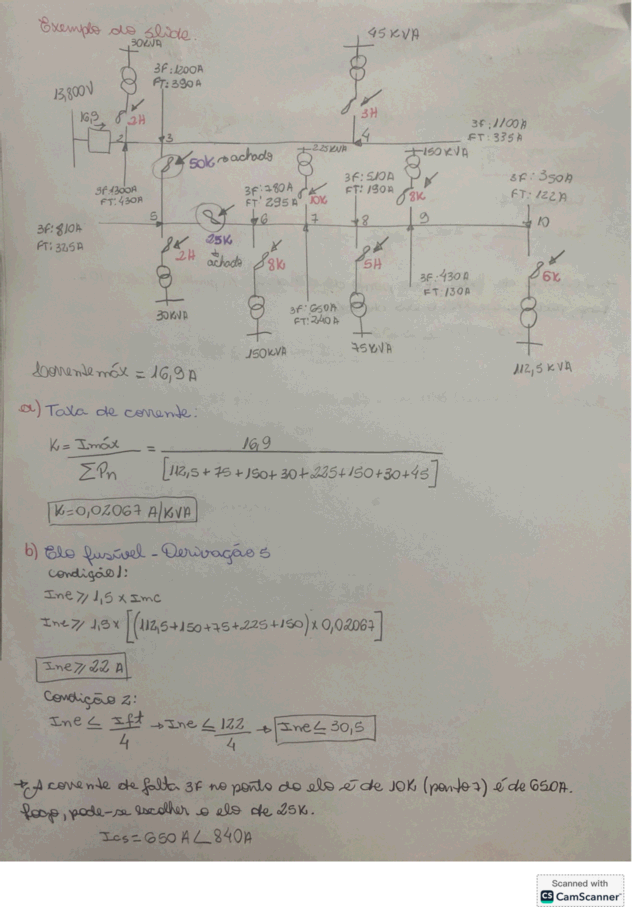 Exemplo do slide:
30KVA
45KVA
3F:1200A
FT:390A
13,800V
16,9
2H
3H
2
3
4
3F:1100A
FT:335A
50K → achado
225KVA
150KVA
3F:1300A
FT:430A
3F:780A
FT:295A
10K
3F:510A
FT:190A
8K
3F:350A
FT:122A
3F:810A
FT:325A
5
6
7
8
9
10
25K
achado
2H
8K
5H
6K
3F:430A
FT:130A
3F:650A
FT:240A
30KVA
150KVA
75KVA
112,5 KVA
Corrente máx = 16,9 A
a) Taxa de corrente:
K = Imáx = 16,9
ΣPn [112,5+75+150+30+225+150+30+45]
K=0,02067 A/KVA
b) Elo fusível - Derivação 5
Condição 1:
Ine ≥ 1,5 x Imc
Ine ≥ 1,5x [(112,5+150+75+225+150)x0,02067]
Ine ≥ 22 A
Condição 2:
Ine ≤ Ift → Ine ≤ 122 → Ine ≤ 30,5
4 4
→ A corrente de falta 3F no ponto do elo é de 10K (ponto 7) é de 650A.
Logo, pode-se escolher o elo de 25K.
Ics = 650 A < 840A
Scanned with
CS CamScanner